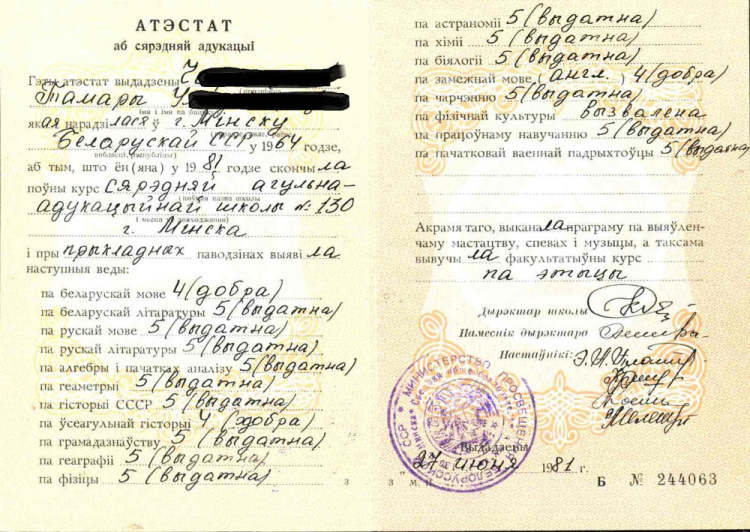 АТЭСТАТ
аб сярэдняй адукацыі
Гэты атэстат выдадзены
Тамары
імя і імя па бацьку
якая нарадзілася ў г. Мінску
Беларускай ССР у 1964 годзе,
вобласці, рэспублікі)
аб тым, што ён (яна) у 1981 годзе скончыла
поўны курс сярэдняй агульна-
(поўная назва школы
адукацыйнай школы № 130
і месца яе знаходжання)
г. Мінска
і пры прыкладных паводзінах выявіла
наступныя веды:
па беларускай мове 4 (добра)
па беларускай літаратуры 5 (выдатна)
па рускай мове 5 (выдатна)
па рускай літаратуры 5 (выдатна)
па алгебры і пачатках аналізу 5 (выдатна)
па геаметрыі 5 (выдатна)
па гісторыі СССР 5 (выдатна)
па ўсеагульнай гісторыі 4 (добра)
па грамадазнаўству 5 (выдатна)
па геаграфіі 5 (выдатна)
па фізіцы 5 (выдатна)
з
па астраноміі 5 (выдатна)
па хіміі 5 (выдатна)
па біялогіі 5 (выдатна)
па замежнай мове (англ.) 4 (добра)
па чарчэнню 5 (выдатна)
па фізічнай культуры вызвалена
па працоўнаму навучанню 5 (выдатна)
па пачатковай ваеннай падрыхтоўцы 5 (выдатна)
Акрамя таго, выканала праграму па выяўлен-
чаму мастацтву, спевах і музыцы, а таксама
вывучыла факультатыўны курс
па этыцы
Дырэктар школы
Намеснік дырэктара
Настаўнікі:
МИНИСТЕРСТВО ПРОСВЕЩЕНИЯ БЕЛОРУССКОЙ ССР
Выдадзены
27 июня 1981 г.
Б № 244063